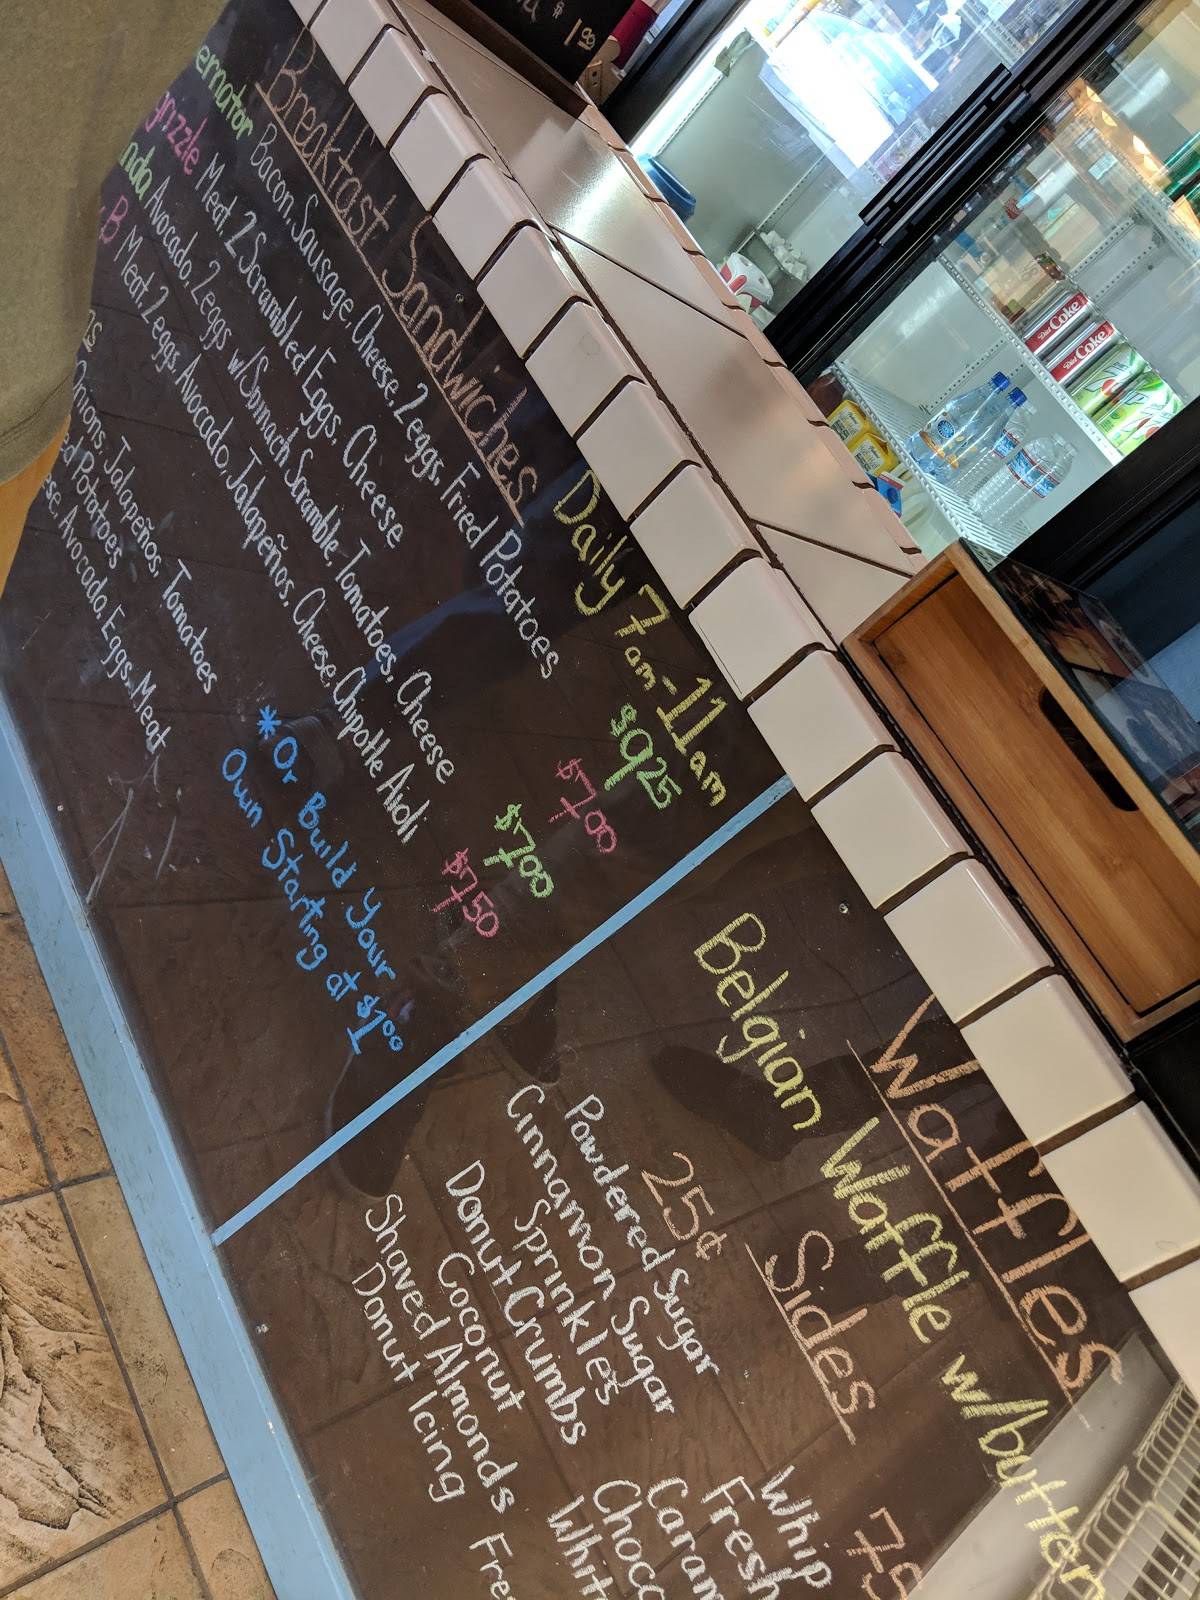 Breakfast Sandwiches
Daily 7am-11am
ernator Bacon, Sausage, Cheese, 2 eggs, Fried Potatoes $9.25
grizzle Meat, 2 Scrambled Eggs, Cheese $7.00
nda Avocado, 2 eggs w/ Spinach Scramble, Tomatoes, Cheese $7.00
B Meat, 2 eggs, Avocado, Jalapeños, Cheese, Chipotle Aioli $7.50
Onions, Jalapeños, Tomatoes
ed Potatoes
ese, Avocado, Eggs, Meat
*Or Build Your
Own Starting at $1.00
Waffles
Belgian Waffle w/butter
Sides
25¢
Powdered Sugar
Cinnamon Sugar
Sprinkles
Donut Crumbs
Coconut
Shaved Almonds
Donut Icing
75
Whip
Fresh
Caram
Choco
Whit
Fre
Diet Coke
Diet Coke